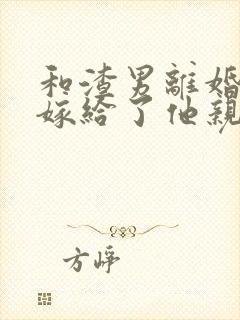 和渣男離婚
嫁給了他親
方崢